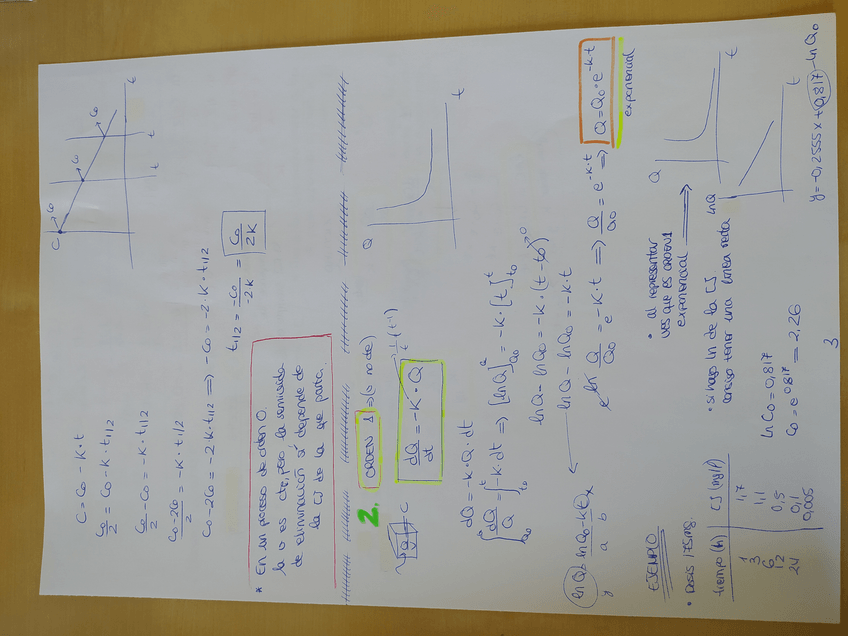 C = C₀ - K · t
C₀/2 = C₀ - K · t1/2
C₀/2 - C₀ = -K · t1/2
C₀-2C₀/2 = -K · t1/2
C₀ - 2C₀ = -2 · K · t1/2 ⟹ -C₀ = -2 · K · t1/2
t1/2 = -C₀/-2K = C₀/2K
C C₀ C₀ C₀
t t t
* En un proceso de orden 0,
la v es cte, pero la semivida
de eliminación sí depende de
la [] de la que parta.
2. ORDEN 1 ⟹
dQ/dt = -K · Q
1/t (t⁻¹)
Q C
Q
t
dQ = -K · Q · dt
∫ dQ/Q = ∫ -K · dt ⟹ [ln Q] Q₀ = -K · [t] t₀
ln Q - ln Q₀ = -K · (t - t₀) 0
ln Q - ln Q₀ = -K · t
ln Q = ln Q₀ - K t x
y a b
e ln Q/Q₀ = e -K · t ⟹ Q/Q₀ = e -K · t ⟹ Q = Q₀ · e -K · t
exponencial
EJEMPLO
• Dosis 175mg.
tiempo (h) [] (mg/l)
1 1,7
3 1,1
6 0,5
12 0,1
24 0,005
• al representar
ves que es ORDEN 1
exponencial
Q
t
• si hago ln de la [],
consigo tener una línea recta
ln Q
t
ln C₀ = 0,817
C₀ = e 0,817 = 2,26
y = -0,2555x + 0,817 - ln Q₀
3